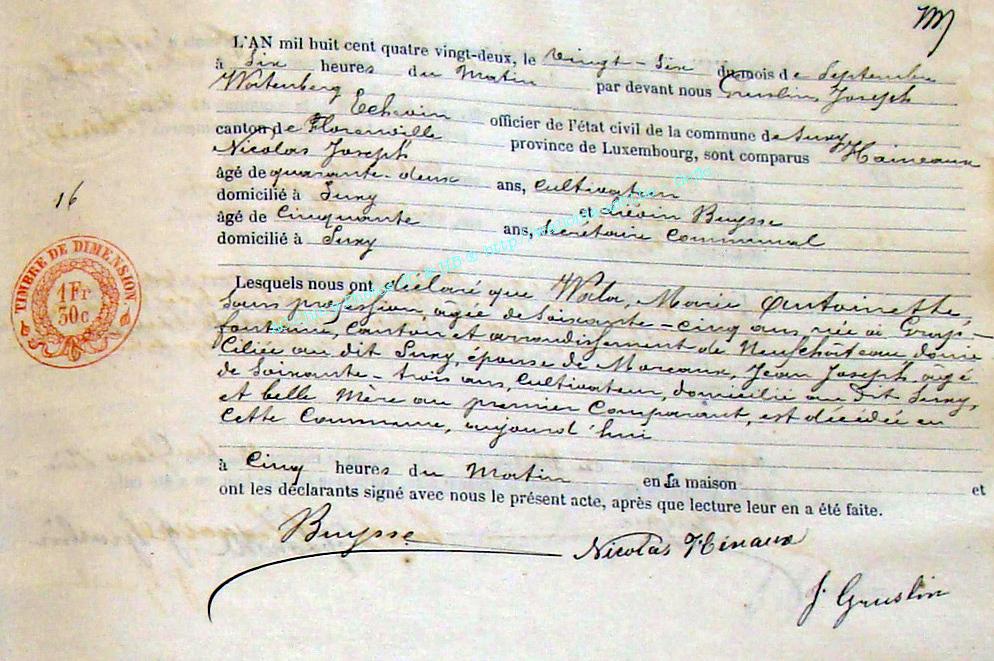 M
L'AN mil huit cent quatre vingt-deux, le vingt-six du mois de Septembre
à Six heures du Matin par devant nous Gruslin, Joseph
Watenberg Echevin officier de l'état civil de la commune de Suxy
canton de Florenville province de Luxembourg, sont comparus Haineaux
Nicolas Joseph
âgé de quarante-deux ans, Cultivateur
domicilié à Suxy et Liévin Buysse
âgé de Cinquante ans, Secrétaire Communal
domicilié à Suxy
16
TIMBRE DE DIMENSION
1 Fr
30 c
Lesquels nous ont déclaré que Wala, Marie Antoinette,
Sans profession, âgée de Soixante-cinq ans, née à Grap-
fontaine, Canton et arrondissement de Neufchâteau, domi
ciliée au dit Suxy, épouse de Moreaux, Jean Joseph, âgé
de Soixante-trois ans, Cultivateur, domicilié au dit Suxy,
et belle Mère au premier Comparant, est décédée en
cette Commune, aujourd'hui
à Cinq heures du Matin en sa maison et
ont les déclarants signé avec nous le présent acte, après que lecture leur en a été faite.
Buysse
Nicolas Hénaux
J. Gruslin